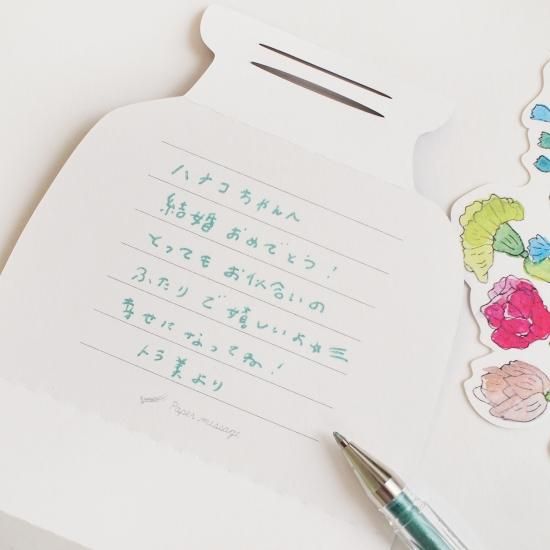 ハナコちゃんへ
結婚おめでとう!
とってもお似合いの
ふたりで嬉しいよ☆三
幸せになってね!
トラ美より
Paper message